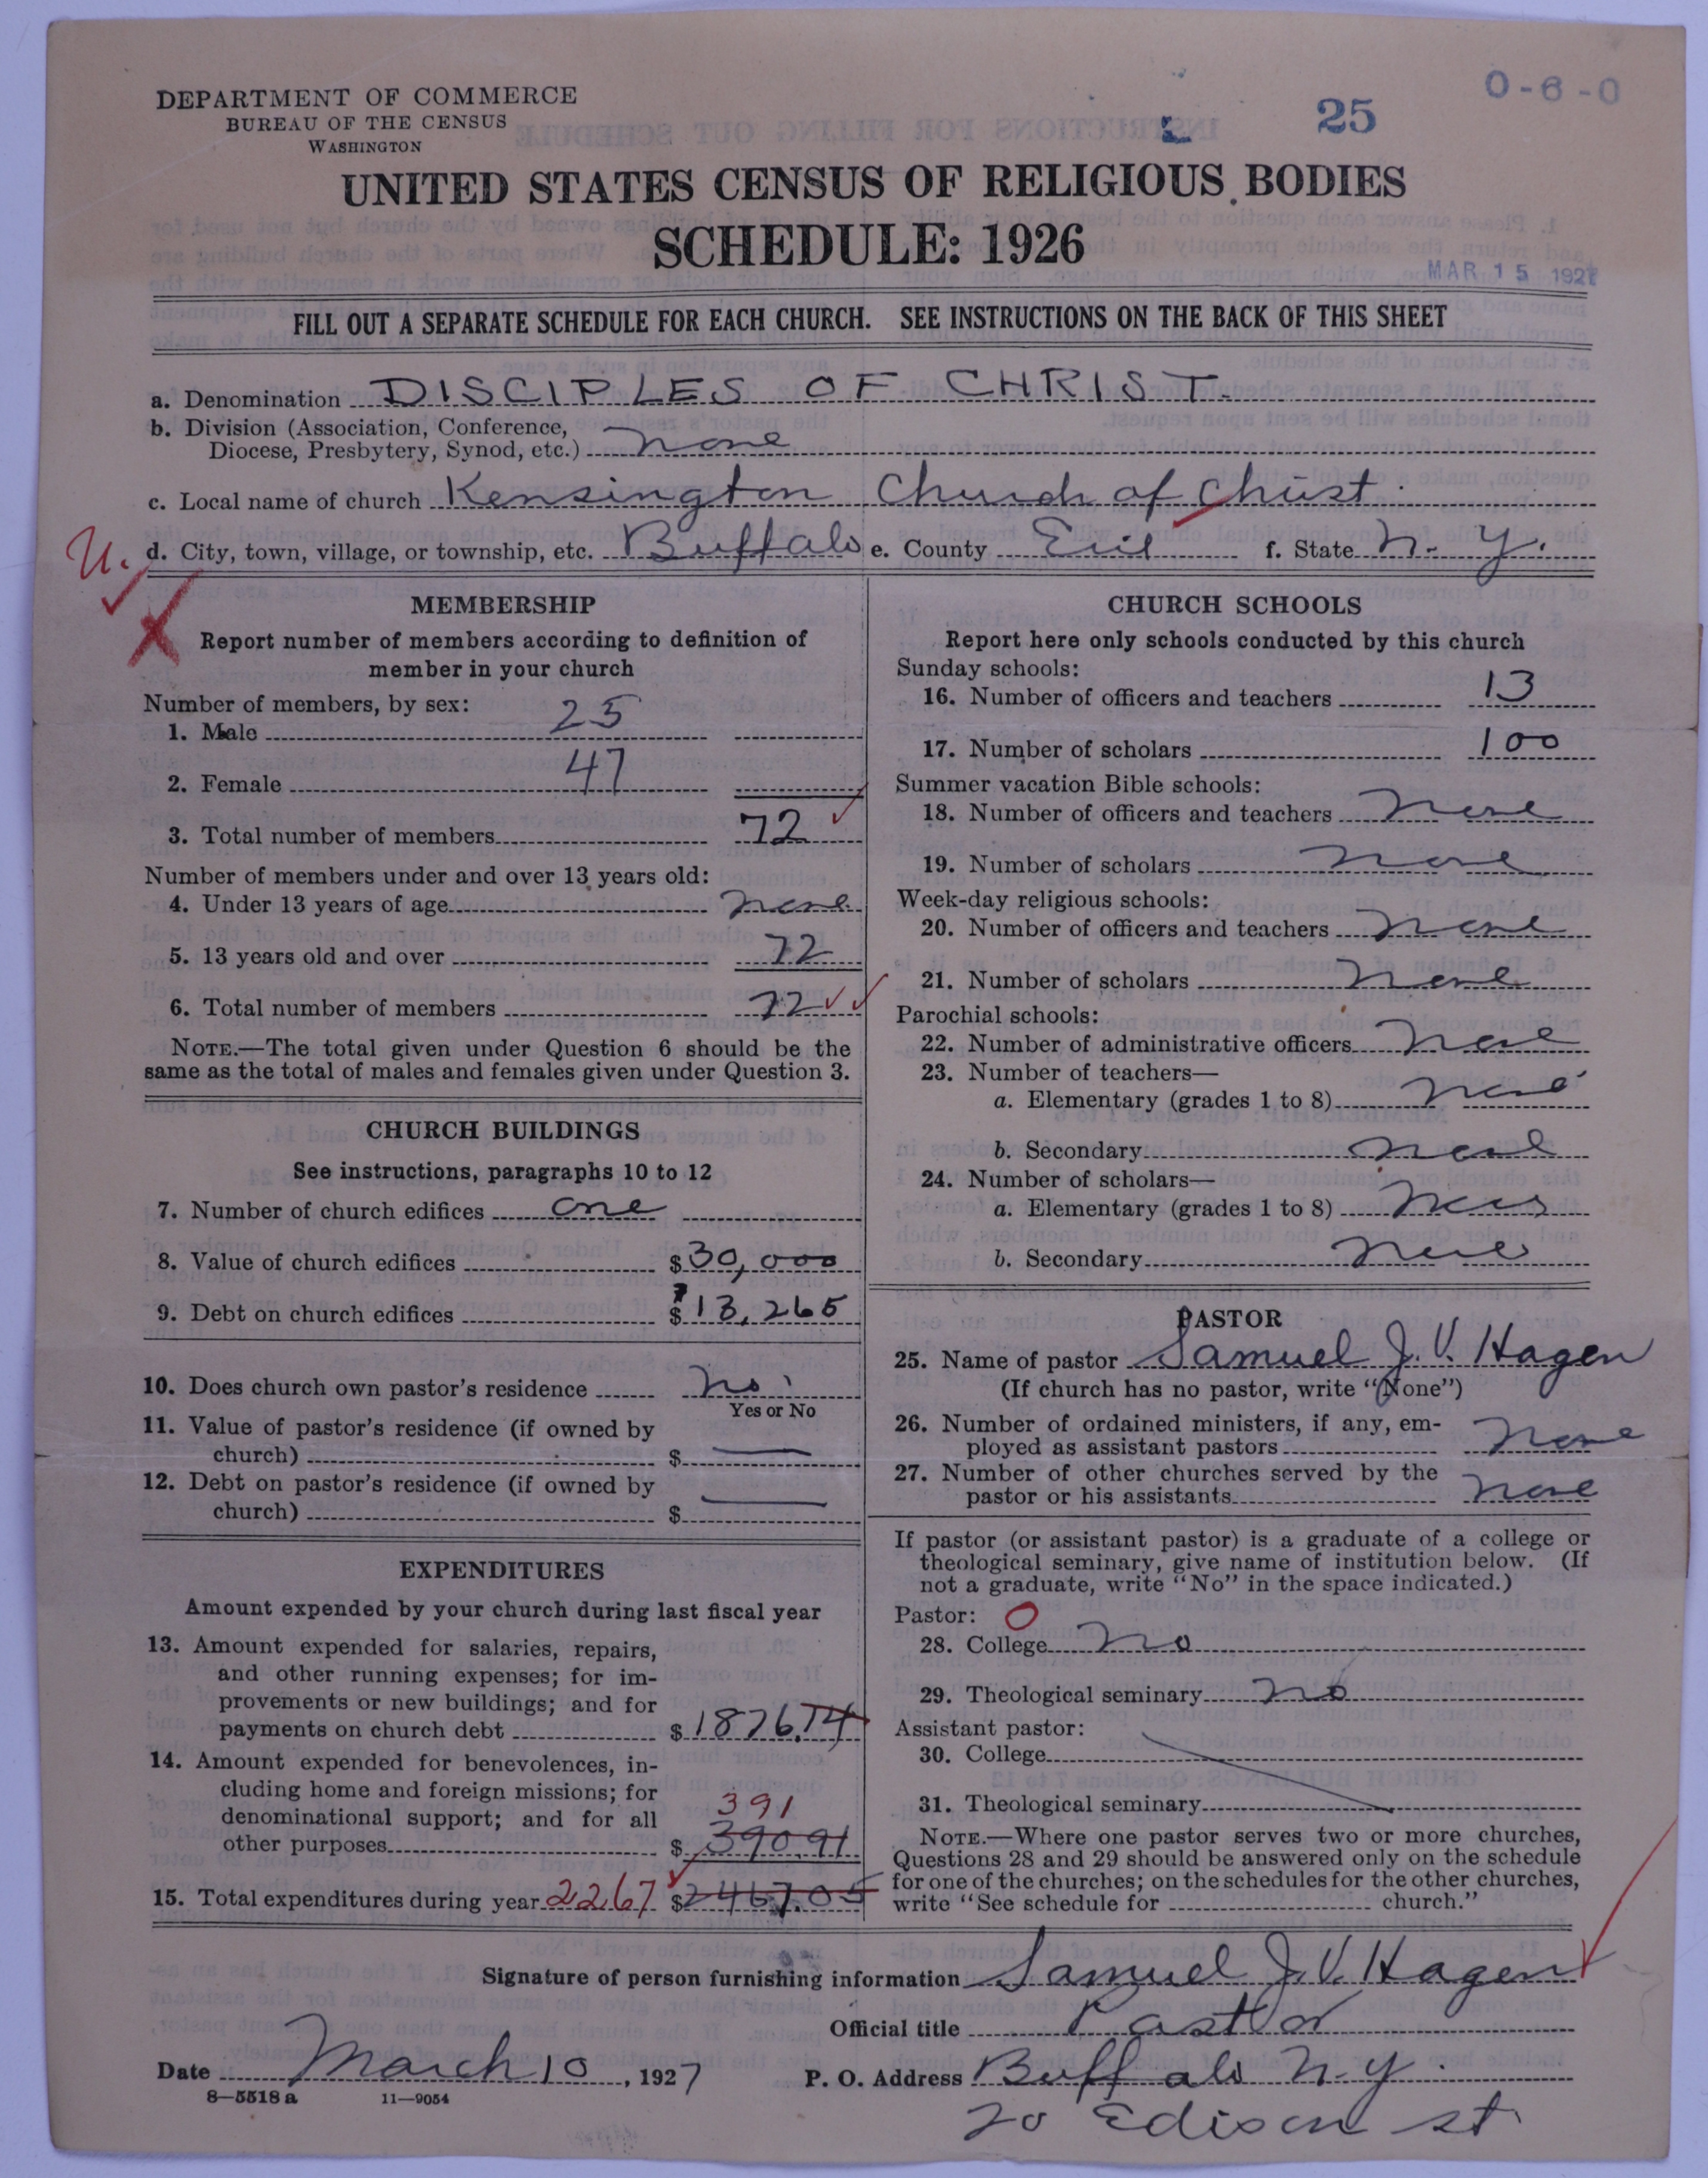 DEPARTMENT OF COMMERCE
BUREAU OF THE CENSUS
WASHINGTON
25
0-6-0
UNITED STATES CENSUS OF RELIGIOUS BODIES
SCHEDULE: 1926
MAR 15 1927
FILL OUT A SEPARATE SCHEDULE FOR EACH CHURCH. SEE INSTRUCTIONS ON THE BACK OF THIS SHEET
a. Denomination DISCIPLES OF CHRIST.
b. Division (Association, Conference,
Diocese, Presbytery, Synod, etc.) none
c. Local name of church Kensington Church of Christ
U. d. City, town, village, or township, etc. Buffalo e. County Erie f. State N. Y.
X
MEMBERSHIP
Report number of members according to definition of
member in your church
Number of members, by sex:
1. Male 25
2. Female 47
3. Total number of members 72
Number of members under and over 13 years old:
4. Under 13 years of age none
5. 13 years old and over 72
6. Total number of members 72
NOTE.—The total given under Question 6 should be the
same as the total of males and females given under Question 3.
CHURCH BUILDINGS
See instructions, paragraphs 10 to 12
7. Number of church edifices one
8. Value of church edifices $30,000
9. Debt on church edifices $13,265
10. Does church own pastor's residence no
Yes or No
11. Value of pastor's residence (if owned by
church) $
12. Debt on pastor's residence (if owned by
church) $
EXPENDITURES
Amount expended by your church during last fiscal year
13. Amount expended for salaries, repairs,
and other running expenses; for im-
provements or new buildings; and for
payments on church debt $1876.74
14. Amount expended for benevolences, in-
cluding home and foreign missions; for
denominational support; and for all 391
other purposes $390.91
15. Total expenditures during year 2267 $2467.05
CHURCH SCHOOLS
Report here only schools conducted by this church
Sunday schools:
16. Number of officers and teachers 13
17. Number of scholars 100
Summer vacation Bible schools:
18. Number of officers and teachers none
19. Number of scholars none
Week-day religious schools:
20. Number of officers and teachers none
21. Number of scholars none
Parochial schools:
22. Number of administrative officers none
23. Number of teachers—
a. Elementary (grades 1 to 8) none
b. Secondary none
24. Number of scholars—
a. Elementary (grades 1 to 8) none
b. Secondary none
PASTOR
25. Name of pastor Samuel J. V. Hagen
(If church has no pastor, write "None")
26. Number of ordained ministers, if any, em-
ployed as assistant pastors none
27. Number of other churches served by the
pastor or his assistants none
If pastor (or assistant pastor) is a graduate of a college or
theological seminary, give name of institution below. (If
not a graduate, write "No" in the space indicated.)
Pastor: O
28. College no
29. Theological seminary no
Assistant pastor:
30. College
31. Theological seminary
NOTE.—Where one pastor serves two or more churches,
Questions 28 and 29 should be answered only on the schedule
for one of the churches; on the schedules for the other churches,
write "See schedule for church."
Signature of person furnishing information Samuel J. V. Hagen
Official title Pastor
Date March 10, 1927 P. O. Address Buffalo N.Y.
8—5518 a 11—9054
20 Edison st